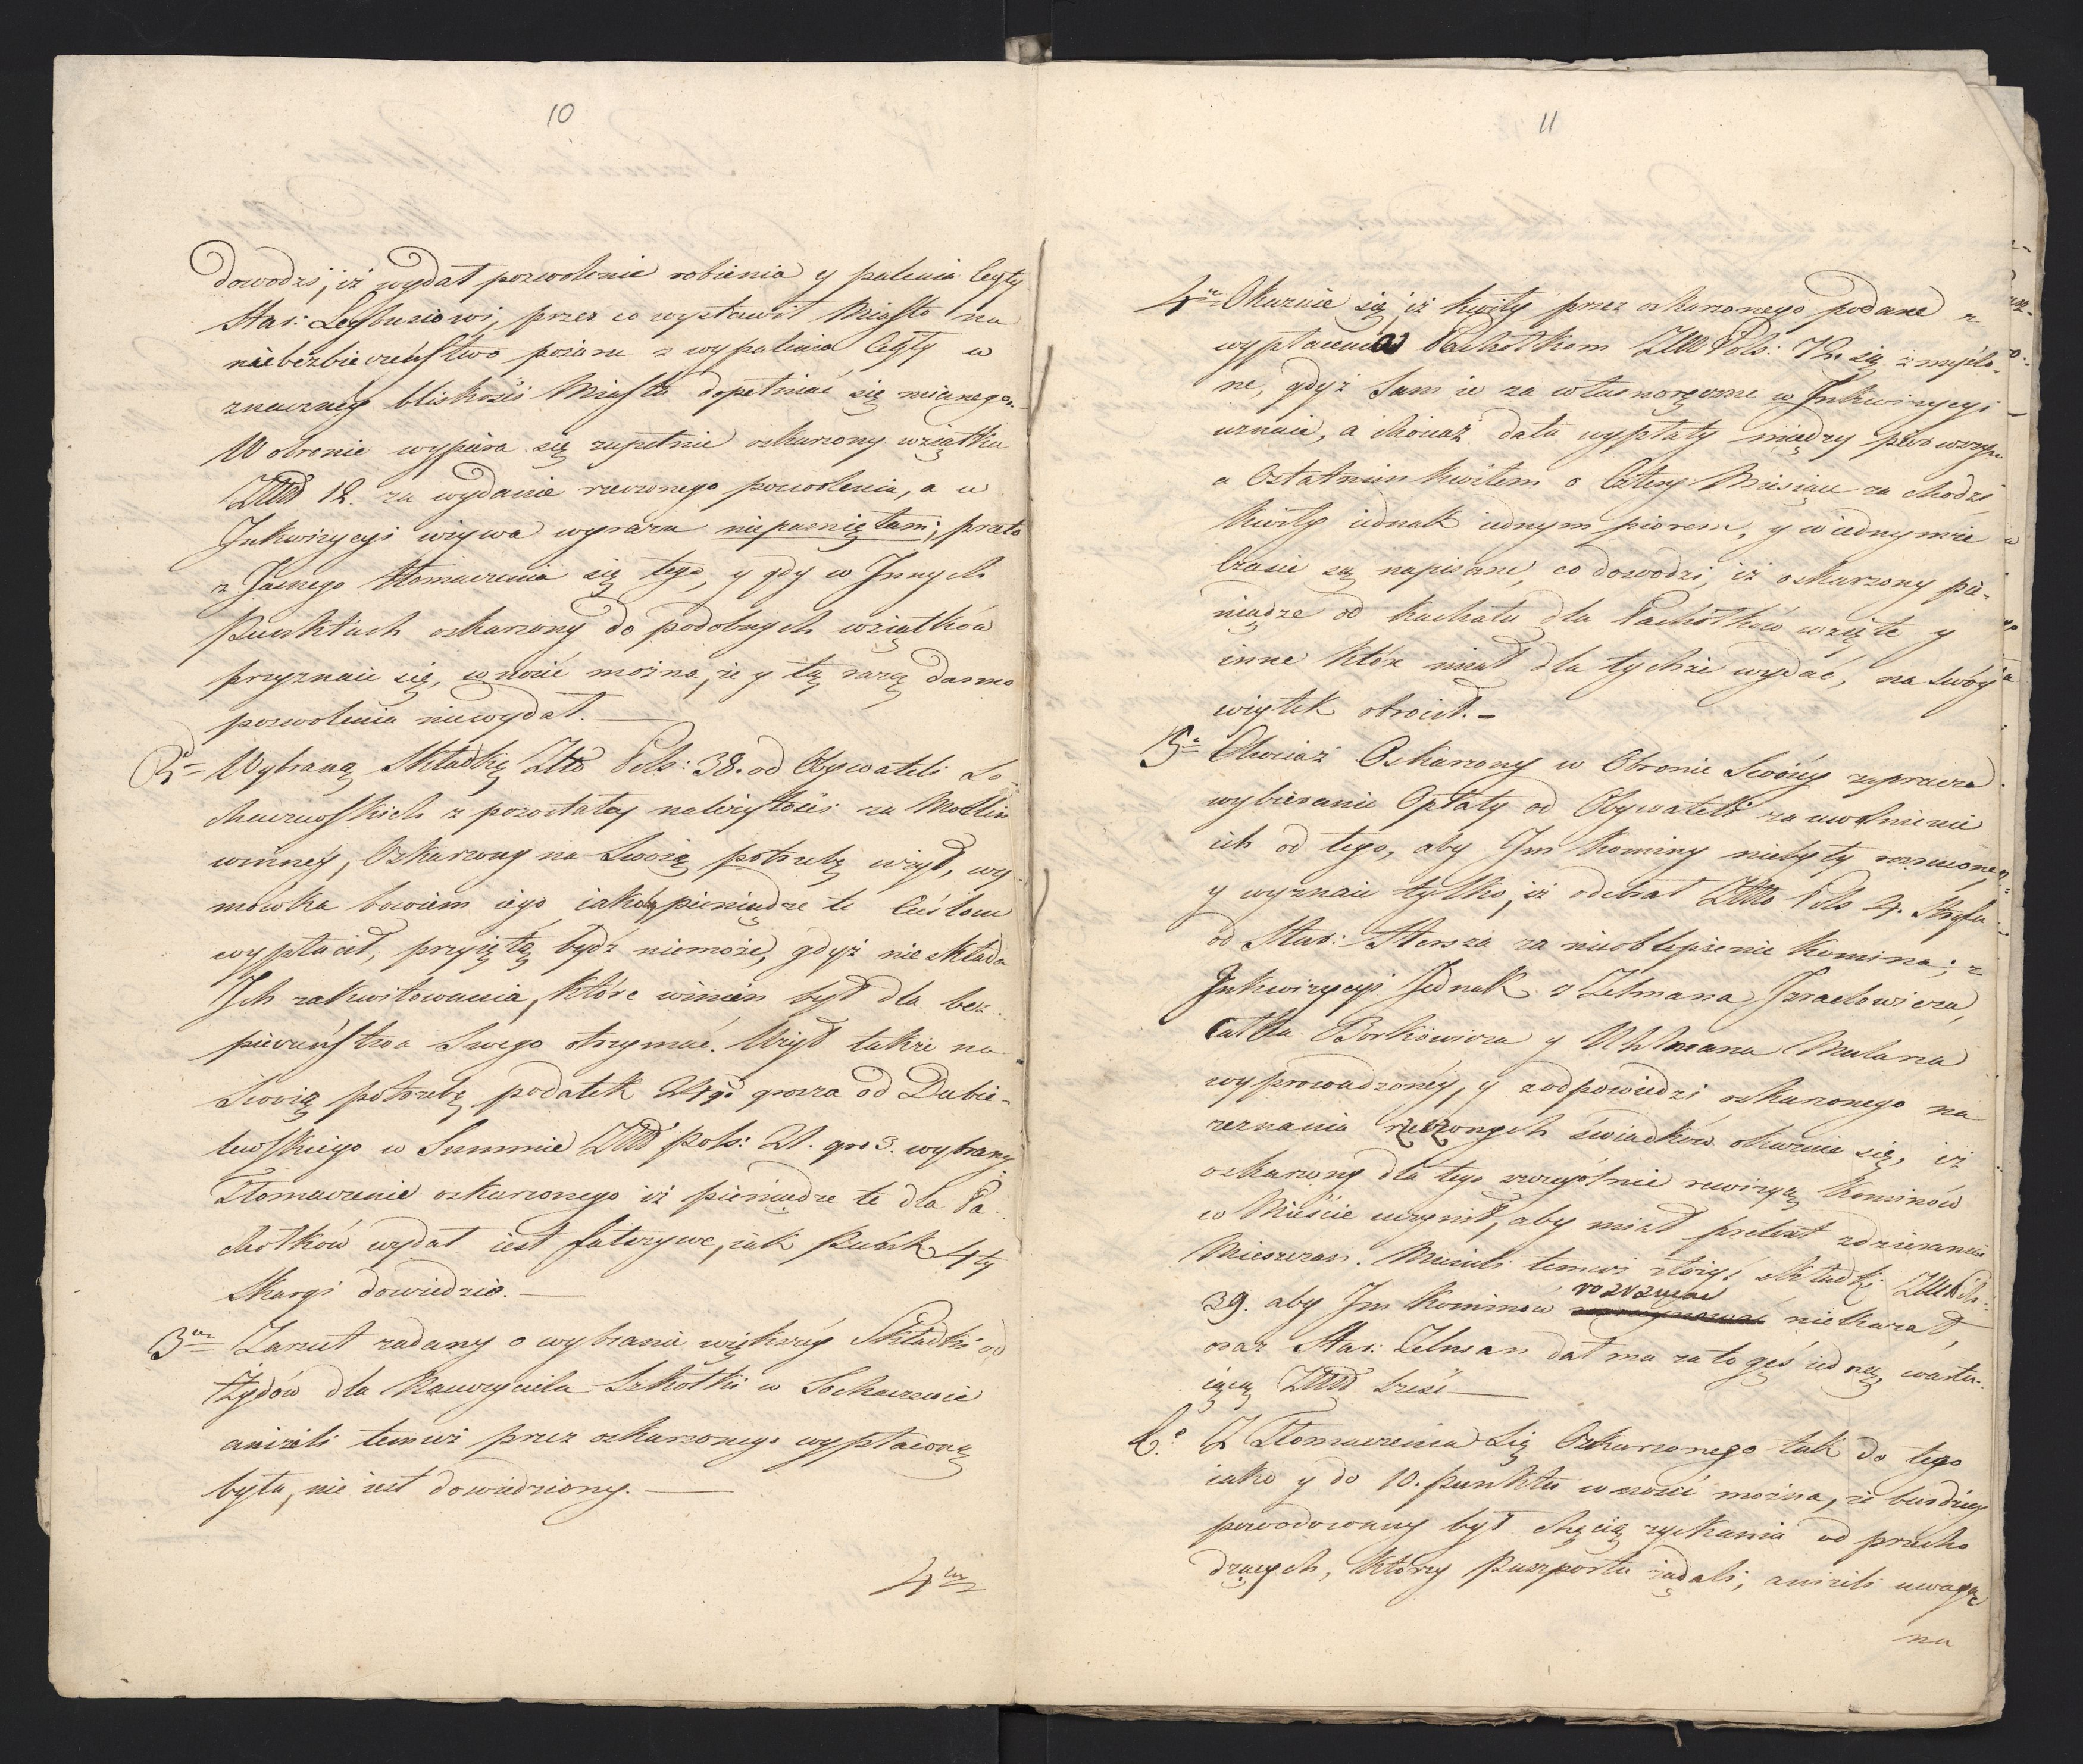 10
dowodzi, iż wydał pozwolenie robienia y palenia Cegły
Star: Leybusiowi, przez co wystawił Miasto na
niebezbieczeństwo pożaru z wypalenia Cegły w
znaczney bliskości Miasta dopełniać się mianego.
W obronie wypiera się zupełnie oskarżony wziątku
Złłł 18. za wydanie rzeczonego pozwolenia, a w
Inkwizycyi używa wyrazu niepamiętam; przeto
z Jasnego tłomaczenia się tego, y gdy w Innych
Punktach oskarżony do podobnych wziątków
przyznaie się, wnosić można, że y tą razą darmo
pozwolenia niewydał. —
2° Wybraną Składkę Złło Pols: 38. od Obywateli So-
chaczewskich z pozostałey należytości za Modlin
winney, Oskarżony na Swoią potrzebę użył, wy
mówka bowiem iego iakoby pieniądze te Cieślom
wypłacił, przyiętą bydź niemoże, gdyż nie składa
Ich zakwitowania, które winien był dla bez-
pieczeństwa Swego otrzymać. Użył także na
Swoią potrzebę podatek 24go grosza od Dubie-
lewskiego w Summie Złłł pols: 21. gro 3. wybrany
Tłomaczenie oskarżonego iż pieniądze te dla Pa-
chołków wydał iest fałszywe, iak Punkt 4ty
Skargi dowiedzie. —
3° Zarzut zadany o wybranie większéy Składki od
Żydów dla Nauczyciela Szkółki w Sochaczewie
aniżeli temuż przez oskarżonego wypłaconą
była, nie iest dowiedziony. —
4to
11
4° Okazuie się, iż kwity przez oskarżonego podane z
wypłacenia Pachołkom Złłł Pols: 72. są zmyślo-
ne, gdyż Sam ie za własnoręczne w Inkwizycyi
uznaie, a chociaż data wypłaty między pierwszym
a Ostatnim kwitem o Cztery Miesiące zachodzi
kwity iednak iednym piorem, y w iednymże
Czasie są napisane, co dowodzi, iż oskarżony pie-
niądze od Kachału dla Pachołków wzięte y
inne które miał dla tychże wydać, na swóy
użytek obrócił. —
5° Chociaż Oskarżony w Obronie Swoiéy zaprzecza
wybierania Opłaty od Obywateli za uwolnienie
ich od tego, aby Im Kominy niebyły rozrucone,
y wyznaie tylko, iż odebrał Złło Pols 4. Sztrofu
od Star: Hersza za nieoblepienie komina; z
Inkwizycyi Jednak z Zelmana Izraelowicza,
Calka Borkowicza y Uhlmana Mularza
wyprowadzonéy, y z odpowiedzi oskarżonego na
zeznania rzeczonych świadków okazuie się, iż
oskarżony dla tego szczególnie rewizyą Kominów
w Mieście uczynił, aby miał pretext zdzierania
Mieszczan. Musieli temuż złożyć składki Złłł Pols:
39. aby Im Kominów rozrzucać niekazał,
oraz Star: Zelman dał mu za to gęś iedną, wartu-
iącą Złłł sześć —
6.° Z Tłomaczenia Się Oskarżonego tak do tego
iako y do 10. Punktu wnosić można, że bardziéy
powodowany był chęcią zyskania od przecho
dzących, którzy Paszportu żądali, aniżeli uwagą
na